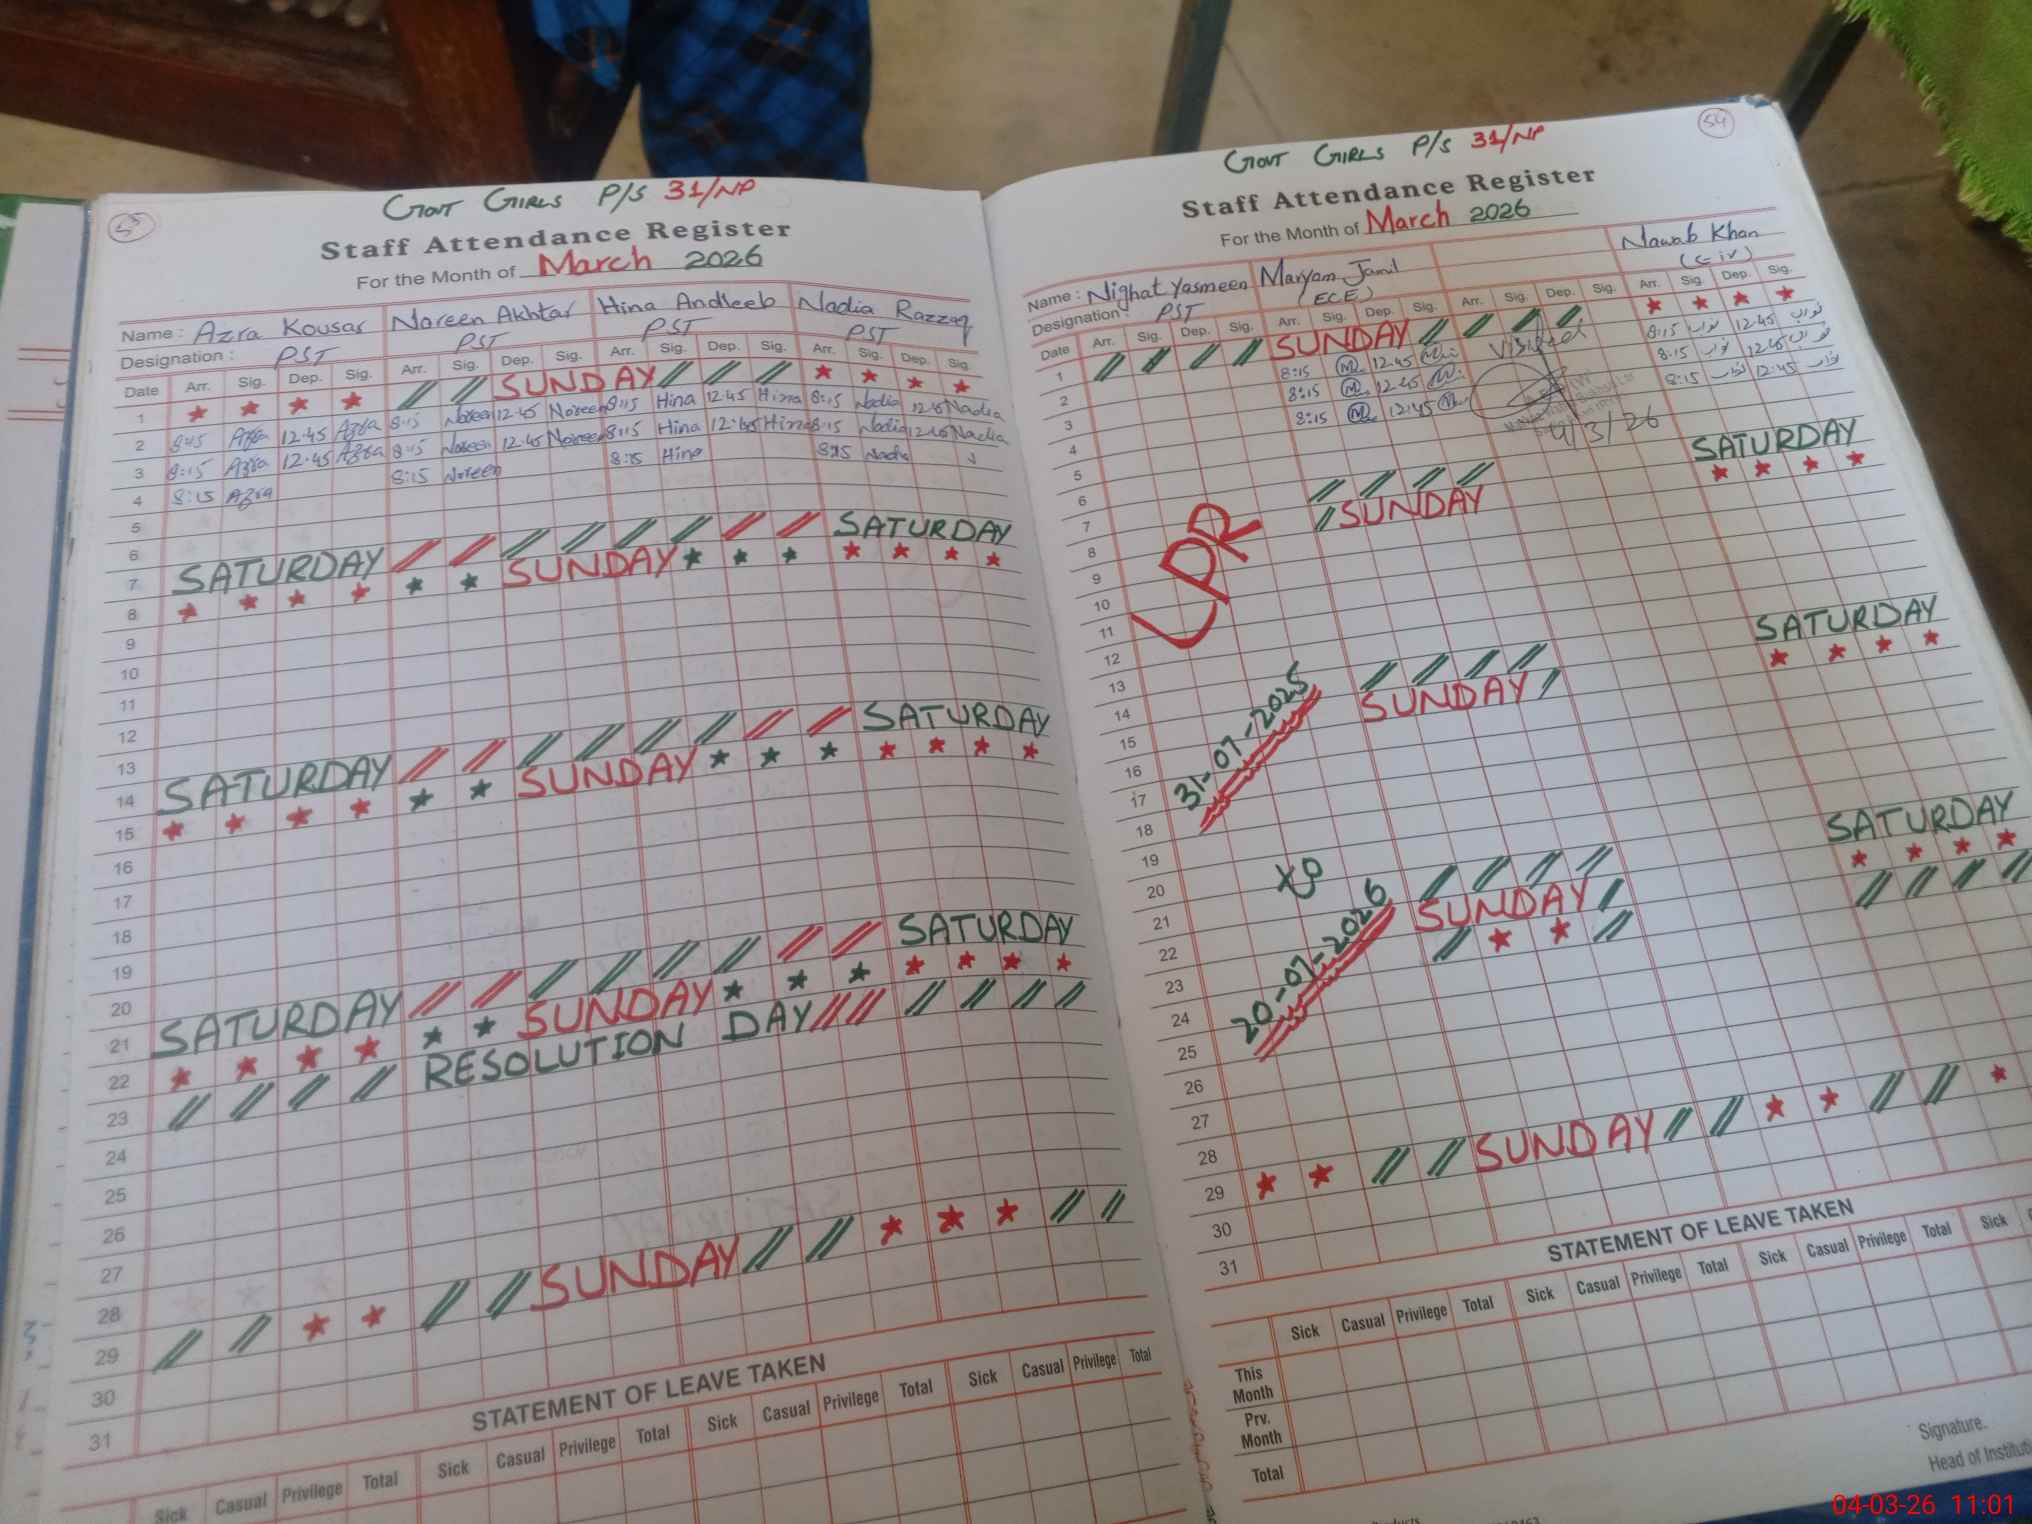 GOVT GIRLS P/S 31/NP
Staff Attendance Register
For the Month of March 2026
Name : Azra Kousar Noreen Akhtar Hina Andleeb Nadia Razzaq
Designation : PST PST PST PST
Date Arr. Sig. Dep. Sig. Arr. Sig. Dep. Sig. Arr. Sig. Dep. Sig. Arr. Sig. Dep. Sig.
1 SUNDAY
2 8:15 Azra 12:45 Azra 8:15 Noreen 12:45 Noreen 8:15 Hina 12:45 Hina 8:15 Nadia 12:45 Nadia
3 8:15 Azra 12:45 Azra 8:15 Noreen 12:45 Noreen 8:15 Hina 12:45 Hina 8:15 Nadia 12:45 Nadia
4 8:15 Azra 8:15 Noreen 8:15 Hina 8:15 Nadia
5
6
7 SATURDAY SATURDAY
8 SUNDAY
9
10
11
12
13
14 SATURDAY SATURDAY
15 SUNDAY
16
17
18
19
20
21 SATURDAY SATURDAY
22 SUNDAY
23 RESOLUTION DAY
24
25
26
27
28
29 SUNDAY
30
31
STATEMENT OF LEAVE TAKEN
Sick Casual Privilege Total Sick Casual Privilege Total Sick Casual Privilege Total Sick Casual Privilege Total
54
GOVT GIRLS P/S 31/NP
Staff Attendance Register
For the Month of March 2026
Name : Nighat Yasmeen Maryam Jamil Nawab Khan
Designation PST (ECE) (C-iv)
Date Arr. Sig. Dep. Sig. Arr. Sig. Dep. Sig. Arr. Sig. Dep. Sig. Arr. Sig. Dep. Sig.
1 SUNDAY
2 8:15 12:45 8:15 نواب 12:45 نواب
3 8:15 12:45 Visited 8:15 نواب 12:45 نواب
4 8:15 12:45 8:15 نواب 12:45 نواب
4/3/26
5
6
7 SATURDAY
8 SUNDAY
LPR
9
10
11
12
13
14 SATURDAY
15 SUNDAY
31-07-2025
16
17
18
19
20
21 SATURDAY
22 SUNDAY
To
20-07-2026
23
24
25
26
27
28
29 SUNDAY
30
31
STATEMENT OF LEAVE TAKEN
Sick Casual Privilege Total Sick Casual Privilege Total Sick Casual Privilege Total Sick
This Month
Prv. Month
Total
Signature.
Head of
04-03-26 11:01